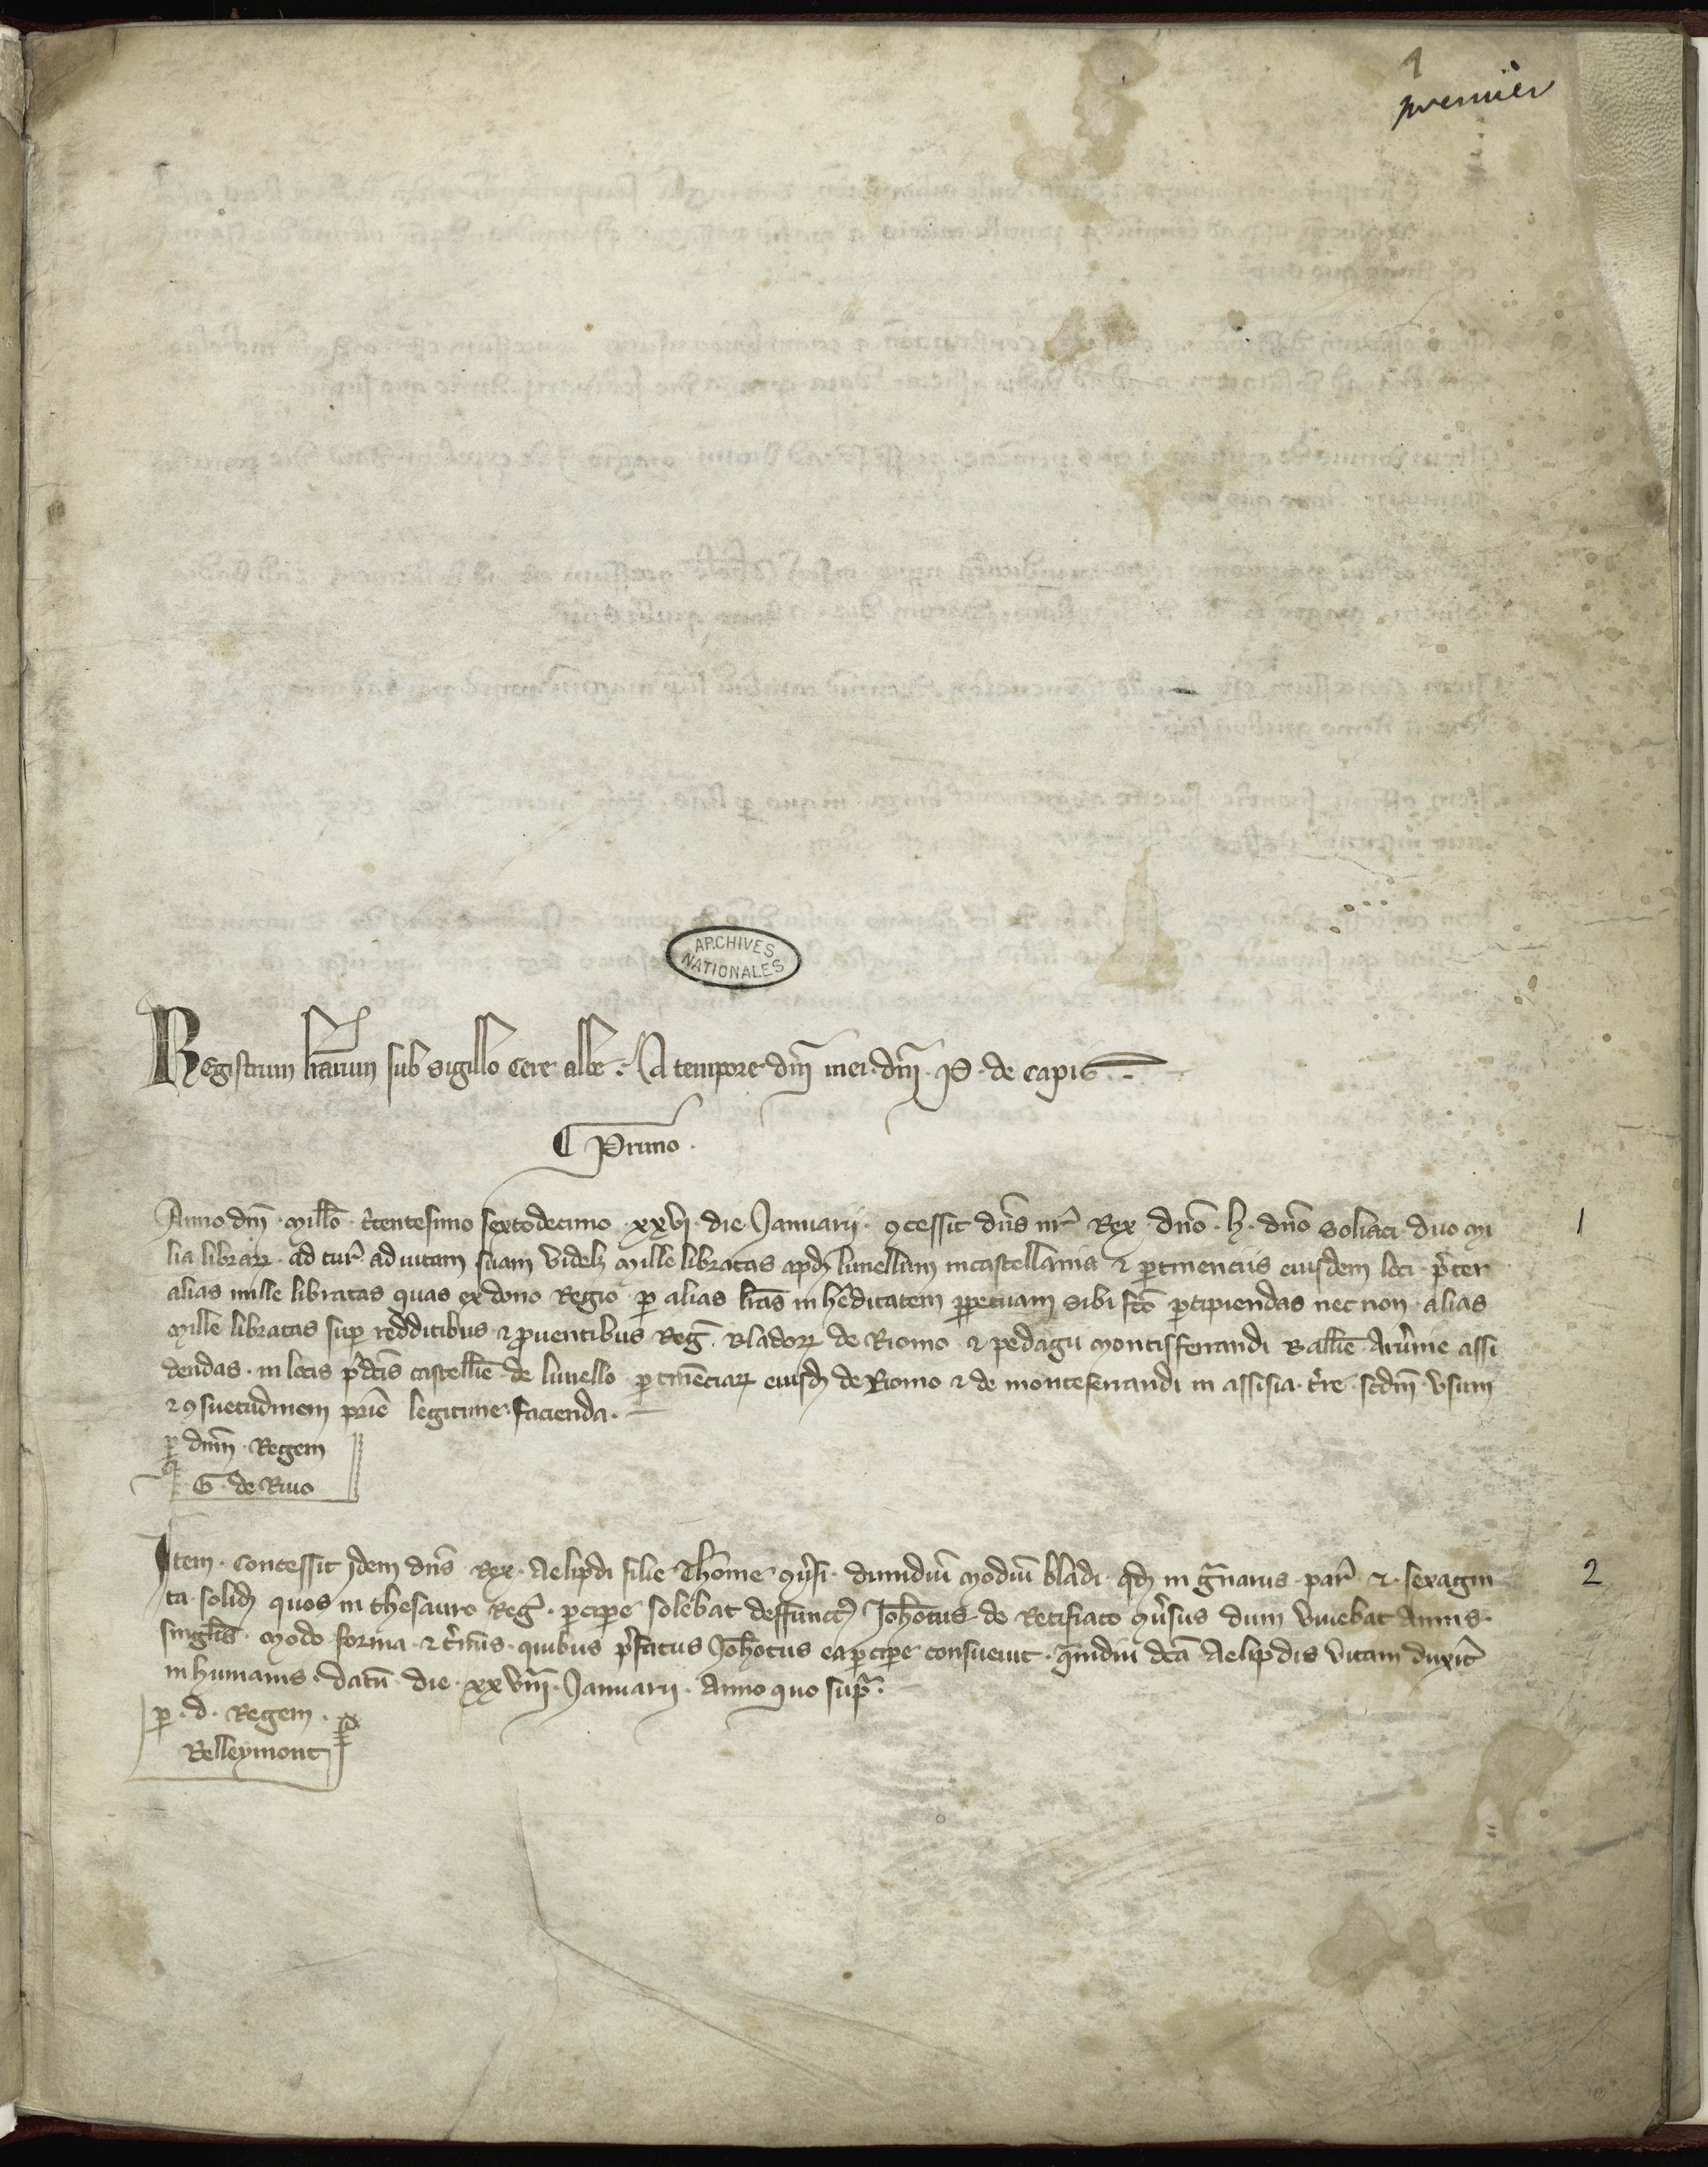 1
premier
ARCHIVES
NATIONALES
Registrum lrarum sub sigillo cere albe. A tempore dni mei dni P. de capis
Primo.
Anno dni millo tcentesimo sextodecimo xxvi die Januarii. ꝯcessit dns nr Rex dno. h. dno Soliaci duo mi
lia librar. ad tur ad vitam suam videlꝫ mille libratas apd lunellum in castellania ⁊ ꝑtinenciis eiusdem loci ꝑter
alias mille libratas quas ex dono Regio ꝑ alias lras in heditatem ꝑpetuam sibi fco ꝑcipiendas nec non alias
mille libratas suꝑ redditibus ⁊ ꝓventibus Reg. Bladoꝝ de Riomo ⁊ pedagii montisferrandi Ballie Arvnie assi
dendas. in locis pdcis castellie de lunello ꝑtinenciaꝝ eiusdꝫ de Riomo ⁊ de monteferrandi in assisia tre scdm usum
⁊ ꝯsuetudinem prie legitime facienda.
ꝑ dnm Regem
G. de Rivo
1
Item. Concessit idem dns Rex. Aelipdi filie Thome dimidiu modiu bladi qd in Gnariis par ⁊. sexagin
ta solidꝫ quos in thesauro Reg. ꝑcipe solebat deffunct Johotus de dum vivebat annis
singlis. modo forma ⁊ tminis quibus pfatus Johotus ea ꝑcipe consuevit. qmdiu dca Aelipdis vitam duxit
in humanis. datu die xxviii Januarii. Anno quo supᵃ.
ꝑ. d. Regem.
Belleymont
2